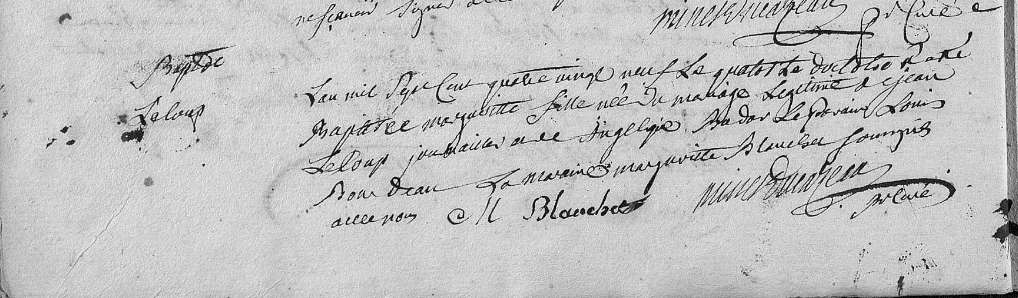 signer
p curé
Bapt de
Leloup
L'an mil Sept Cent quatre vingt neuf Le quatorze d'octobre a été
Baptisée marguerite fille née du mariage Legitime de jean
Leloup journailler et de Angelique Badar Le parain Louis
Bourdeau La maraine marguerite Blanchet soussigné
avec nous M Blanchet
p Curé